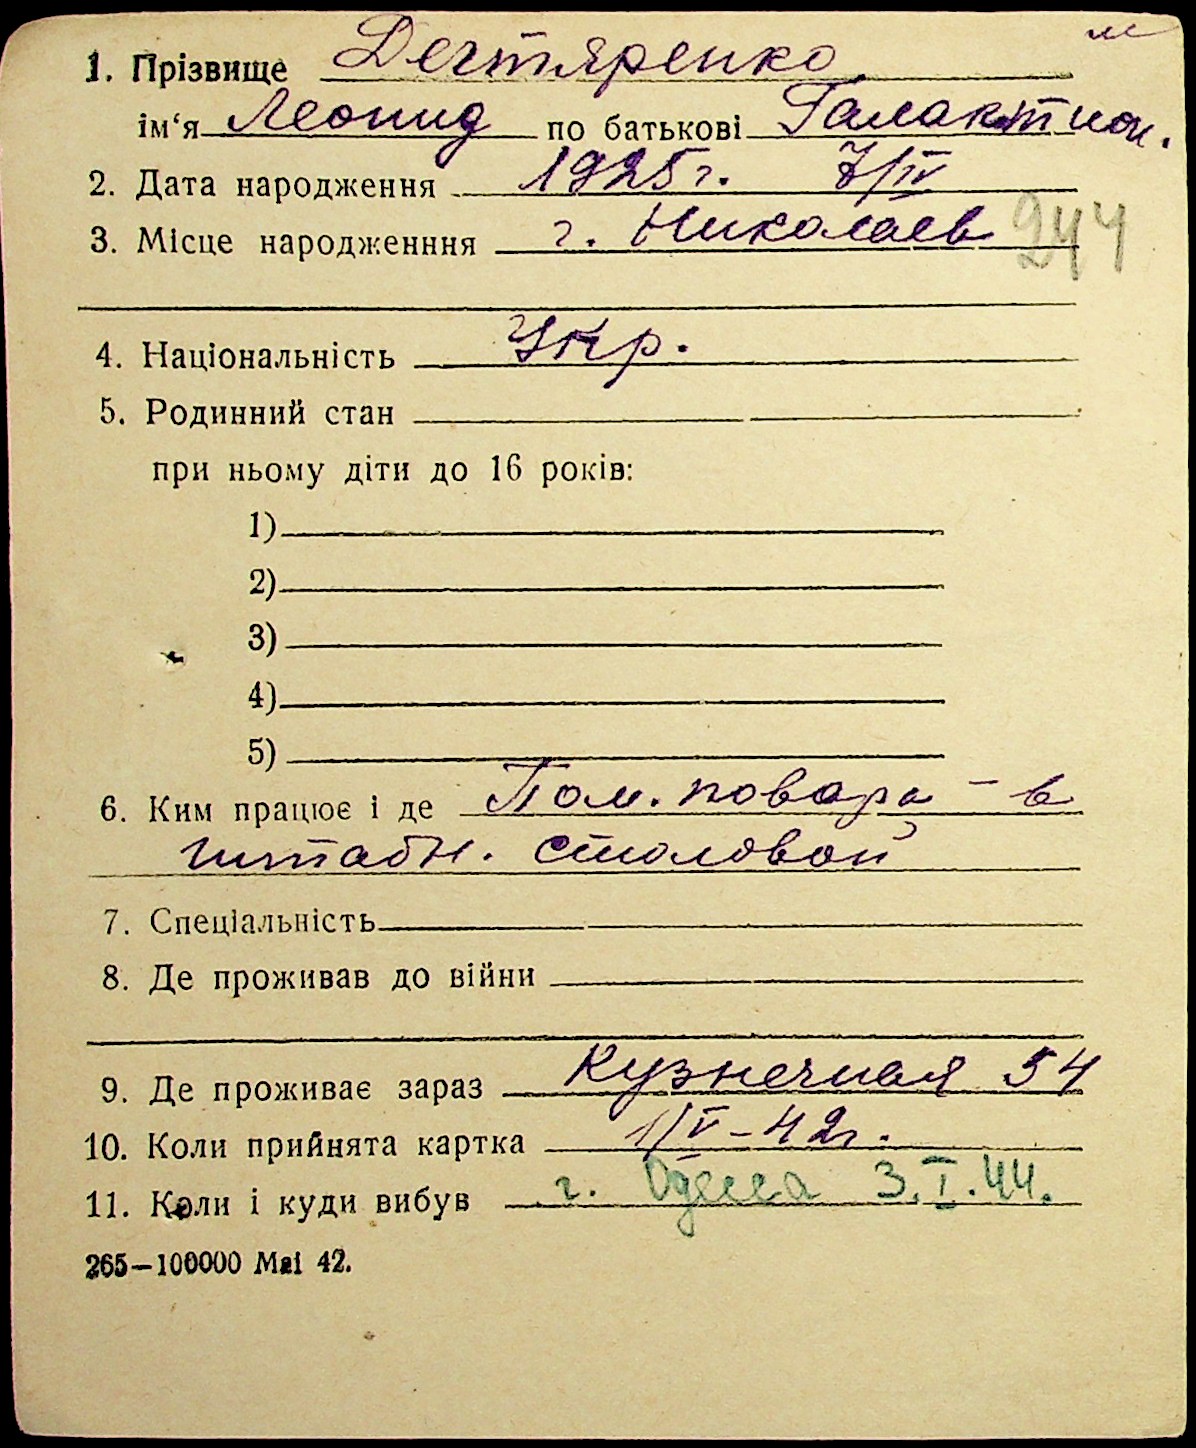 м
1. Прізвище Дегтяренко
ім‘я Леонид по батькові Галактион.
2. Дата народження 1925 г. 7/IV
3. Місце народженння г. Николаев 244
4. Національність Укр.
5. Родинний стан
при ньому діти до 16 років:
1)
2)
3)
4)
5)
6. Ким працює і де Пом. повара – в
штабн. столовой
7. Спеціальність
8. Де проживав до війни
9. Де проживає зараз Кузнечная 54
10. Коли прийнята картка 1/V – 42 г.
11. Коли і куди вибув г. Одесса 3.I.44.
265—100000 Маі 42.